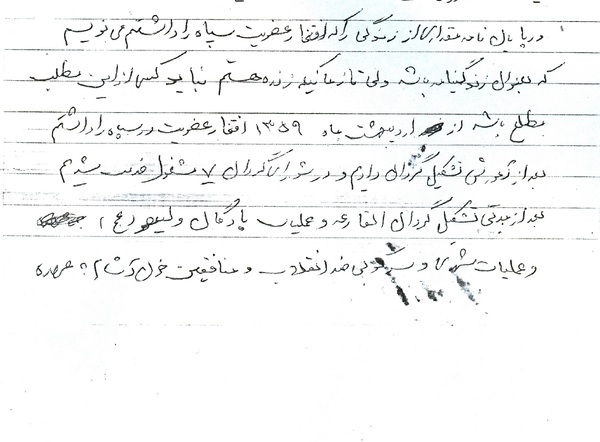 در پایان نامه مقداری از زندگی را که افتخار عضویت سپاه را داشتم می نویسم
که بعنوان زندگینامه باشد ولی تا زمانیکه زنده هستم نباید کسی از این مطلب
مطلع باشد از اردیبهشت ماه ۱۳۵۹ افتخار عضویت در سپاه را داشتم
بعد از آموزشی تشکیل گردان دادیم و در شورای گردان ۷ مشغول خدمت شدیم
بعد از مدتی تشکیل گردان القارعه و عملیات پادگان ولیعصر (عج)
و عملیات شهری و سرکوبی ضد انقلاب و منافقین خون آشام به عهده